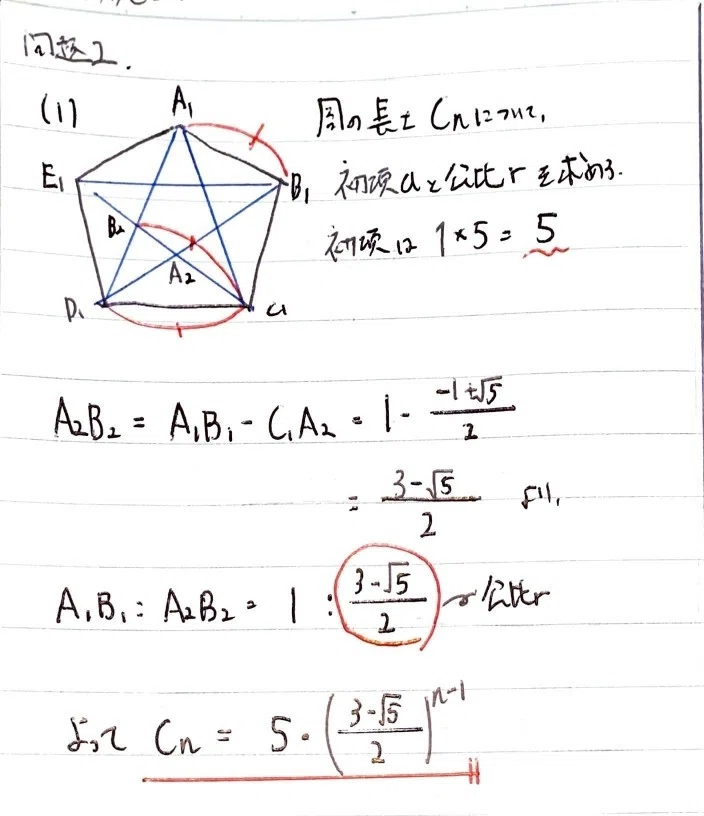 問題2.
(1)
A₁
E₁
B₁
B₂
A₂
D₁
C₁
周の長さ Cnについて,
初項aと公比rを求める.
初項は 1×5 = 5
A₂B₂ = A₁B₁ - C₁A₂ = 1 - (-1+√5)/2
= (3-√5)/2 より,
A₁B₁ : A₂B₂ = 1 : (3-√5)/2 → 公比r
よって Cn = 5・((3-√5)/2)^(n-1)